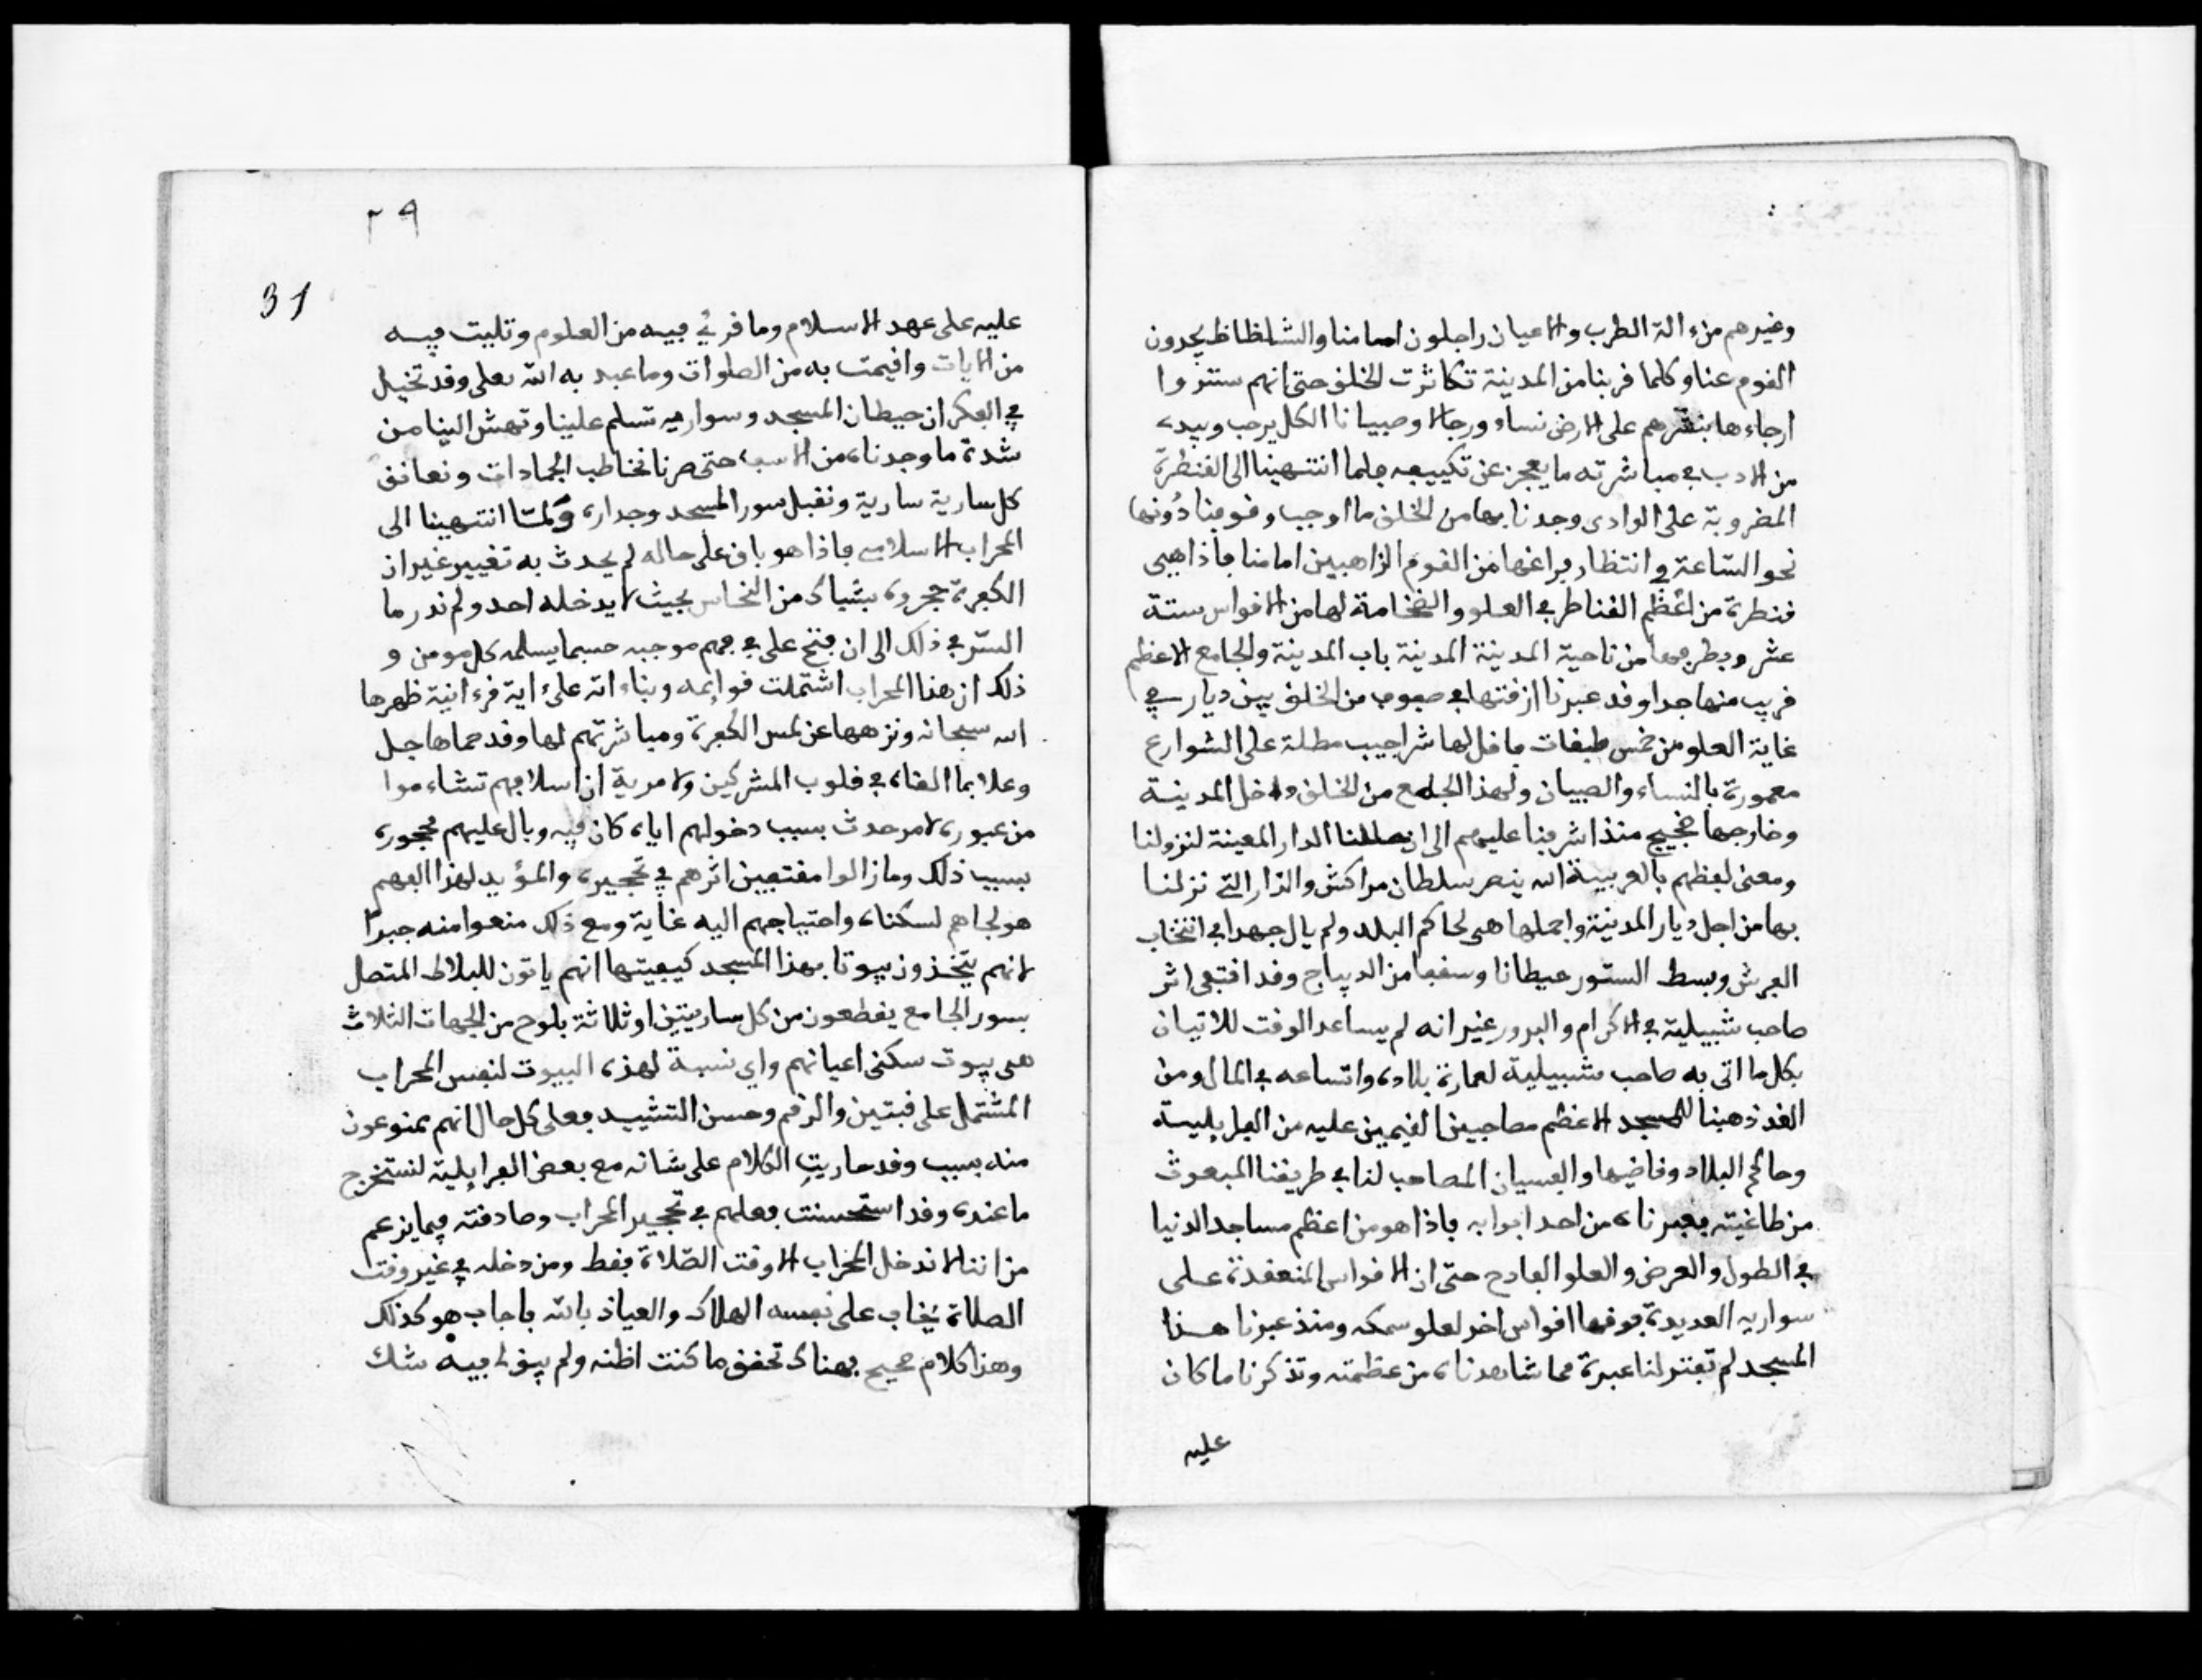 وغيرهم من ءالة الطرب والاعيان راجلون امامنا والشلظاظ يجردون
القوم عنا وكلما قربنا من المدينة تكاثرت الخلق حتى انهم ستروا
ارجاءها بنشرهم على الارض نساء ورجالا وصبيانا الكل يرحب ويبدء
من الادب في مباشرته ما يعجز عن تكييفه فلما انتهينا الى القنطرة
المضروبة على الوادى وجدنا بها من الخلق ما اوجب وقوفنا دونها
نحو الساعة في انتظار فراغها من القوم الزاهبين امامنا فاذا هيى
قنطرة من اعظم القناطر في العلو والضخامة لها من الاقواس ستة
عشر وبطرفها من ناحية المدينة المدينة باب المدينة والجامع الاعظم
قريب منها جدا وقد عبرنا ازقتها في صفوف من الخلق بين ديار في
غاية العلو من خمس طبقات فاقل لها شراجيب مطلة على الشوارع
معمورة بالنساء والصبيان ولهذا الجامع من الخلق داخل المدينة
وخارجها ضجيج منذ اشرفنا عليهم الى ان وصلنا الدار المعينة لنزولنا
ومعنى لفظهم بالعربية الله ينصر سلطان مراكش والدار التى نزلنا
بها من اجل ديار المدينة واجملها هى لحاكم البلد ولم يال جهدا في انتخاب
الفرش وبسط الستور حيطانا وسقفا من الديباج وقد اقتفى اثر
صاحب شبيلية في الاكرام والبرور غير انه لم يساعد الوقت للاتيان
بكل ما اتى به صاحب شبيلية لعمارة بلاده واتساعه في المال ومن
الغد ذهبنا للمسجد الاعظم مصاحبين القيمين عليه من الفرايلية
وحاكم البلاد وقاضيها والفسيان المصاحب لنا في طريقنا المبعوث
من طاغيته فعبرناه من احد ابوابه فاذا هو من اعظم مساجد الدنيا
في الطول والعرض والعلو الفادح حتى ان الاقواس المنعقدة على
سواريه العديدة فوقها اقواس اخر لعلو سمكه ومنذ عبرنا هذا
المسجد لم تفتر لنا عبرة مما شاهدناه من عظمته وتذكرنا ما كان
عليه
٢٩
31
عليه على عهد الاسلام وما قرئ فيه من العلوم وتليت فيه
من الايات واقيمت به من الصلوات وما عبد به الله تعلى وقد تخيل
في الفكر ان حيطان المسجد وسواريه تسلم علينا وتهش الينا من
شدة ما وجدناه من الاسف حتى صرنا نخاطب الجمادات ونعانق
كل سارية سارية ونقبل سور المسجد وجداره ولما انتهينا الى
المحراب الاسلامى فاذا هو باق على حاله لم يحدث به تغيير غير ان
الكفرة حجروه بشباك من النحاس بحيث لا يدخله احد ولم ندر ما
السر في ذلك الى ان فتح على في فهم موجبه حسبما يسلمه كل مومن و
ذلك ان هذا المحراب اشتملت قوائمه وبناءاته على اية قرءانية ظهرها
الله سبحانه ونزهها عن لمس الكفرة ومباشرتهم لها وقد حماها جل
وعلا بما القاه في قلوب المشركين ولا مرية ان اسلافهم تشاءموا
من عبوره لامر حدث بسبب دخولهم اياه كان فيه وبال عليهم فحجروه
بسبب ذلك وما زالوا مقتفين اثرهم في تحجيره والمؤيد لهذا الفهم
هو لجاهم لسكناه واحتياجهم اليه غاية ومع ذلك منعوا منه جبرا
لانهم يتخذون بيوتا بهذا المسجد كيفيتها انهم ياتون للبلاط المتصل
بسور الجامع يقطعون من كل ساريتين او ثلاثة بلوح من الجهات الثلاث
هى بيوت سكنى اعيانهم واى نسبة لهذه البيوت لنفس المحراب
المشتمل على قبتين والرقم وحسن التشييد فعلى كل حال انهم ممنوعون
منه بسبب وقد ماريت الكلام على شانه مع بعض الفرايلية لنستخرج
ما عنده وقد استحسنت فعلهم في تحجير المحراب وصادفته فيما يزعم
من اننا لا ندخل المحراب الا وقت الصلاة فقط ومن دخله في غير وقت
الصلاة يخاف على نفسه الهلاك والعياذ بالله فاجاب هو كذلك
وهذا كلام صحيح فهناك تحقق ما كنت اظنه ولم يبق لى فيه شك